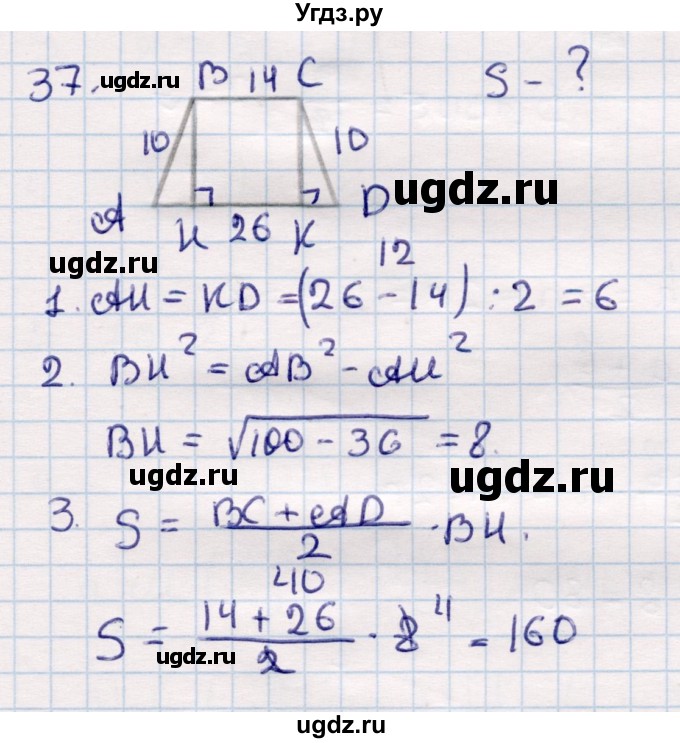 Угдз.ру
37. ugdz.ru B 14 C S - ?
10 10
A H 26 K D ugdz.ru
ugdz.ru 12
1. AH = KD = (26 - 14) : 2 = 6
2. BH² = AB² - AH²
BH = √100 - 36 = 8.
ugdz.ru ugdz.ru
3. S = BC + AD / 2 · BH.
40
S = 14 + 26 / 2 · 8 4 = 160
ugdz.ru ugdz.ru
ugdz.ru